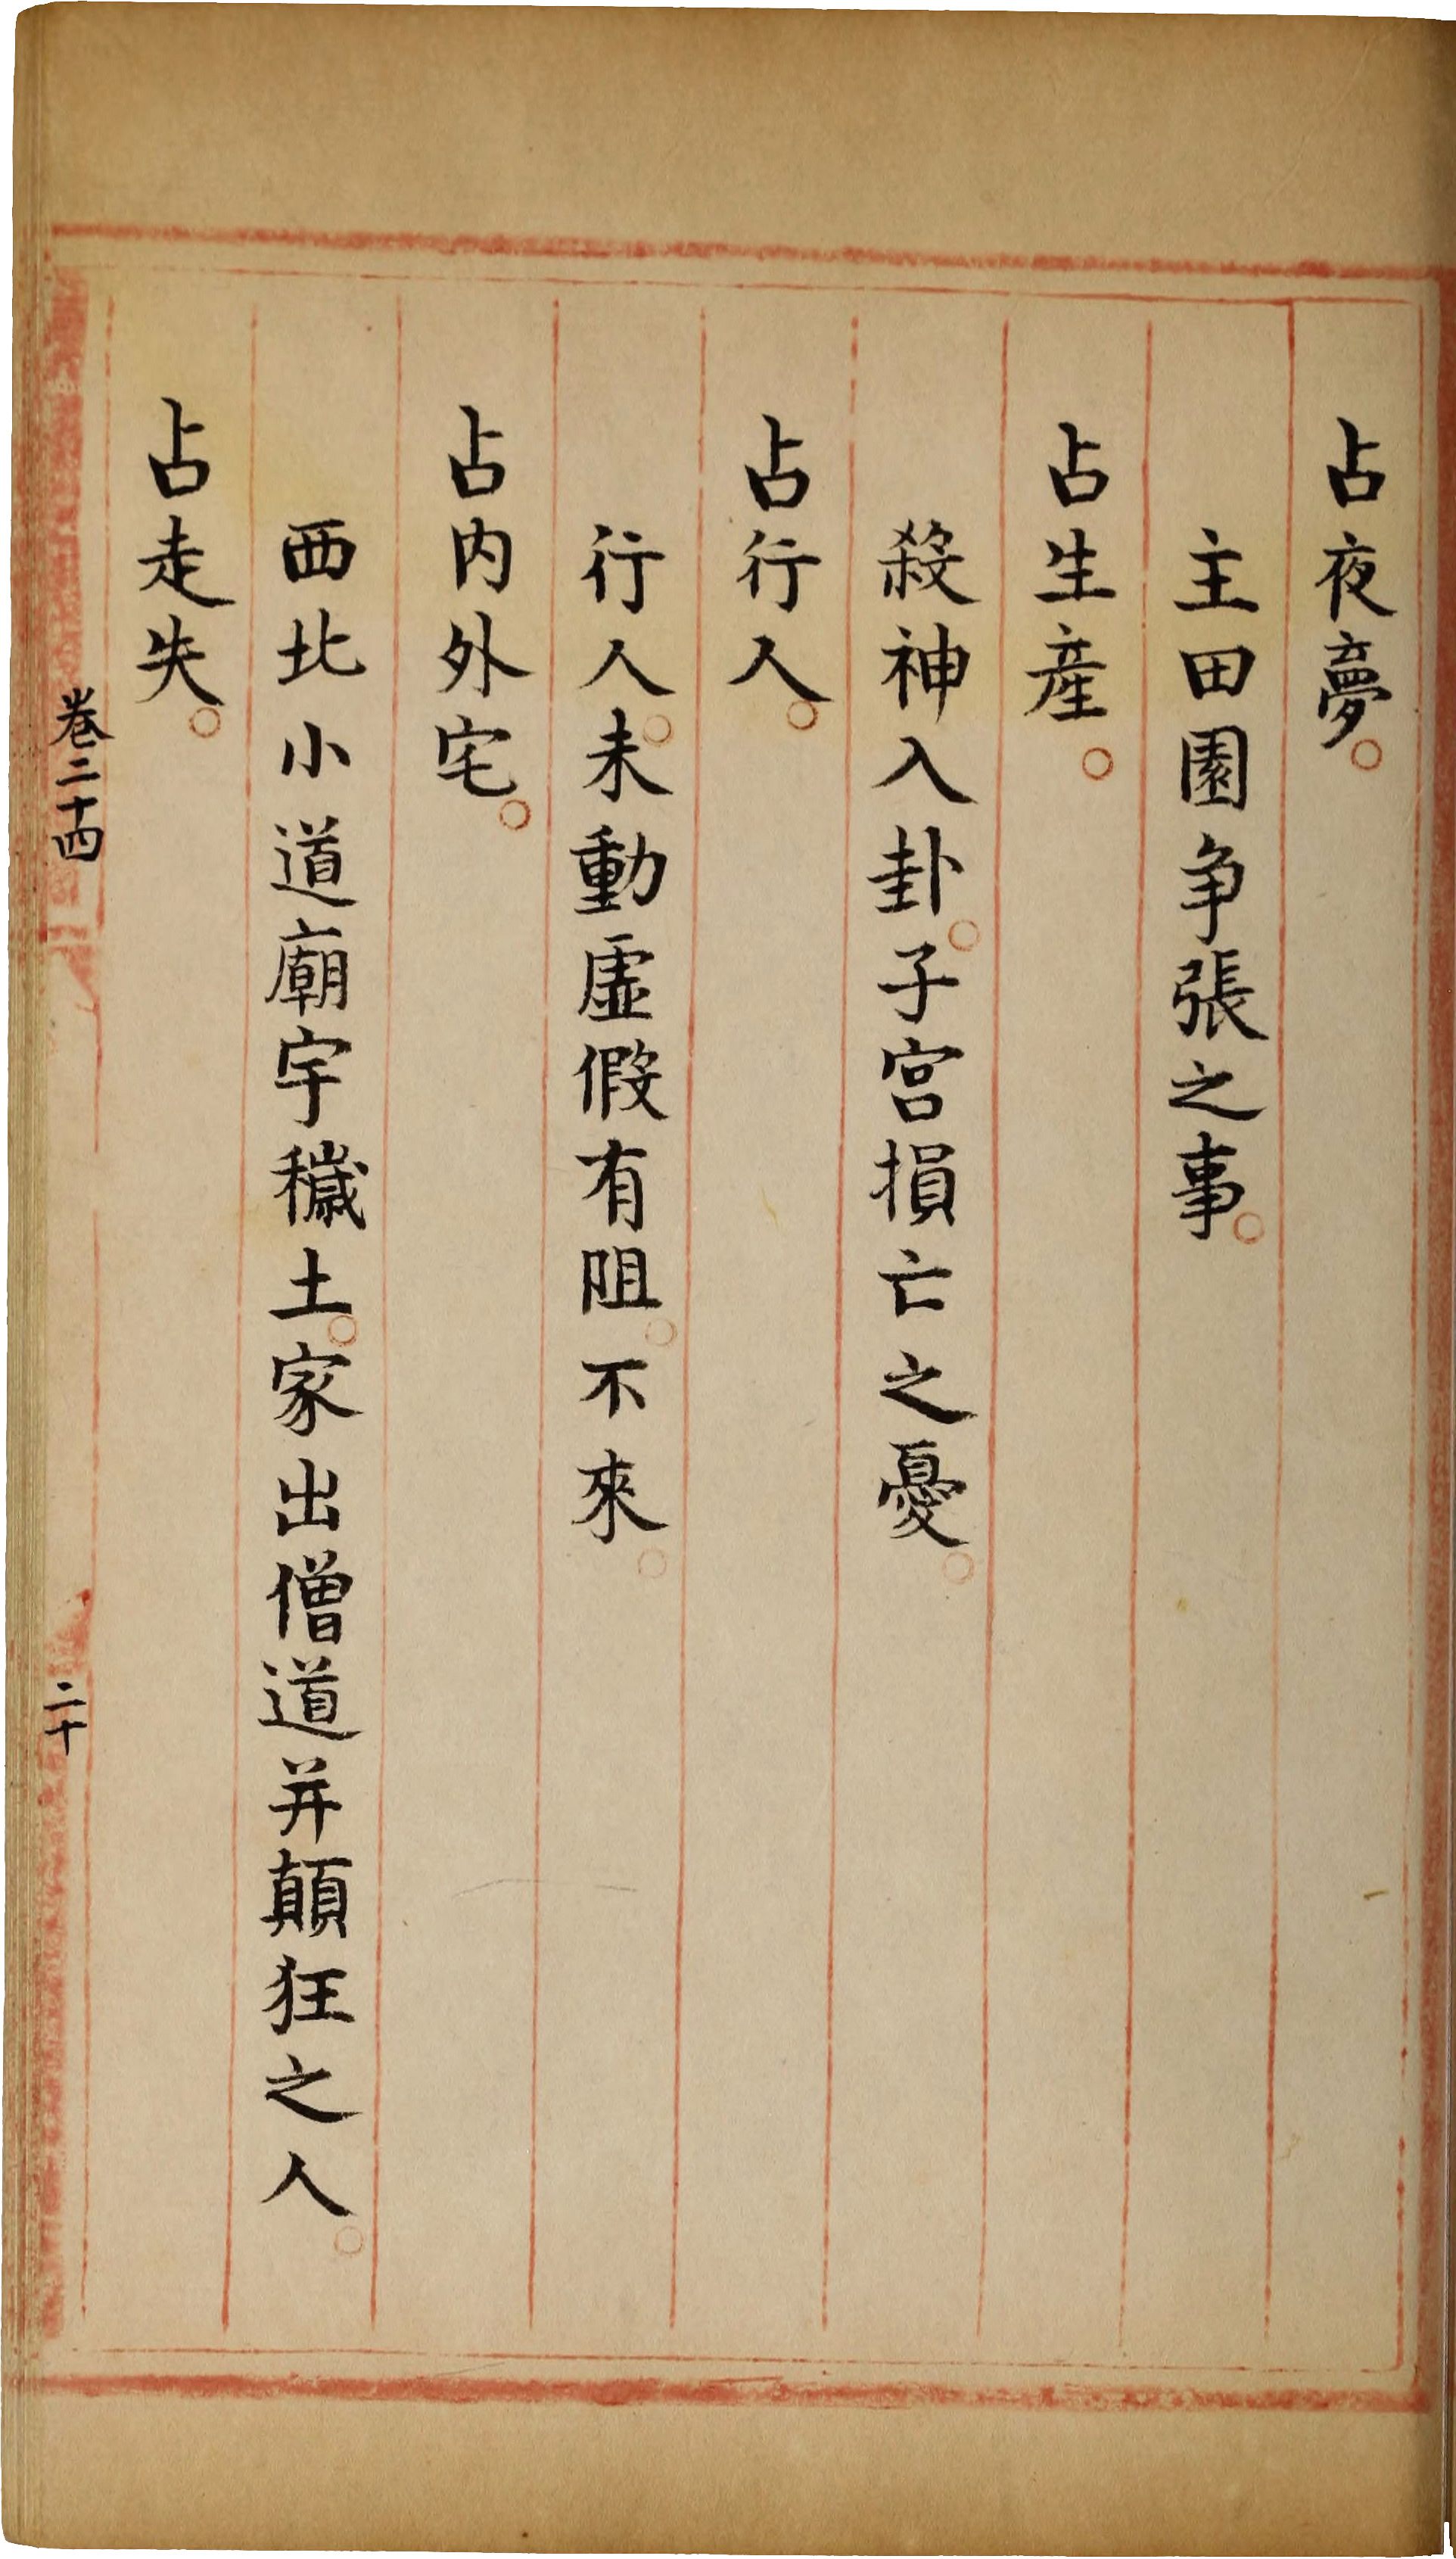 占夜夢。
主田園爭張之事。
占生產。
殺神入卦。子宮損亡之憂。
占行人。
行人。未動虛假有阻。不來。
占內外宅。
西北小道廟宇穢土。家出僧道并顛狂之人。
占走失。
卷二十四
二十